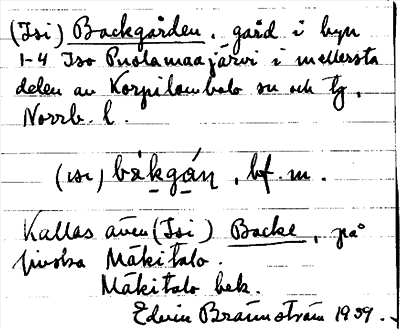 (Isi) Backgården. gård i byn
1-4 Iso Puolamaajärvi i mellersta
delen av Korpilombolo sn och tg,
Norrb. l.
(isi) bàkgán, bf. m.
Kallas även (Isi) Backe, på
finska Mäkitalo.
Mäkitalo bek.
Edvin Brännström 1939.